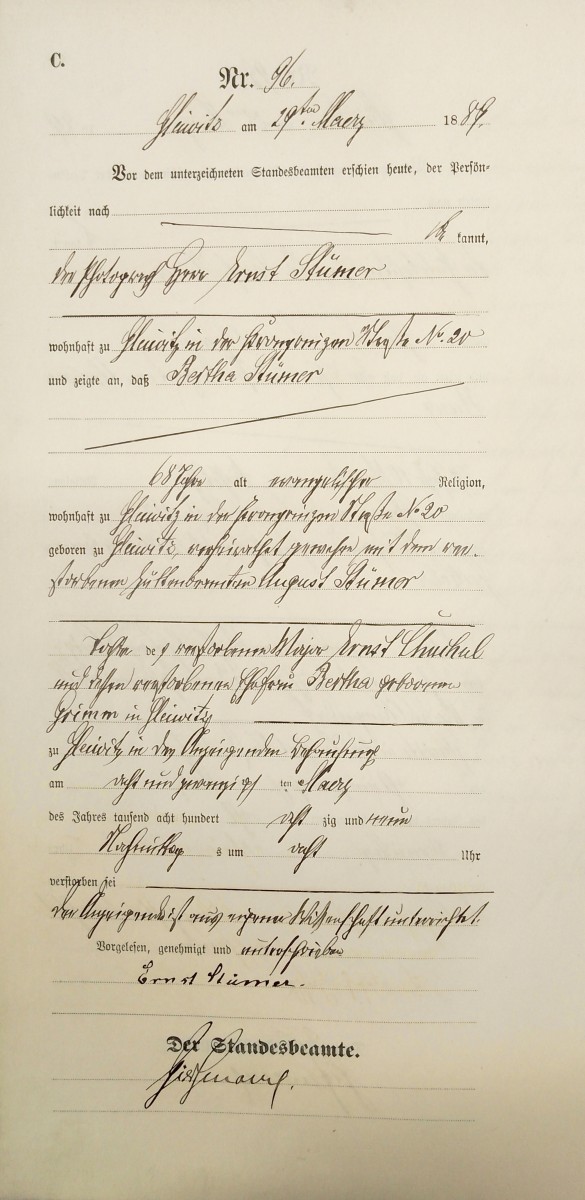 C.
Nr. 96.
Gleiwitz am 29ten Maerz 1889.
Vor dem unterzeichneten Standesbeamten erschien heute, der Persön-
lichkeit nach
be kannt,
der Photograph Herr Ernst Stümer
wohnhaft zu Gleiwitz in der Straße No. 20
und zeigte an, daß Bertha Stümer
68 Jahre alt evangelischer Religion,
wohnhaft zu Gleiwitz in der Straße No 20
geboren zu Gleiwitz, verheirathet gewesen mit dem ver-
storbenen Hüttenbeamten August Stümer
Tochter des verstorbenen Major Ernst
und dessen verstorbenen Ehefrau Bertha geborenen
Grimm in Gleiwitz
zu Gleiwitz in des Anzeigenden Behausung
am acht und zwanzigsten Maerz
des Jahres tausend acht hundert acht zig und neun
Nachmittags um acht Uhr
verstorben sei
Der Anzeigende ist aus eigener Wissenschaft unterrichtet.
Vorgelesen, genehmigt und unterschrieben
Ernst Stümer.
Der Standesbeamte.